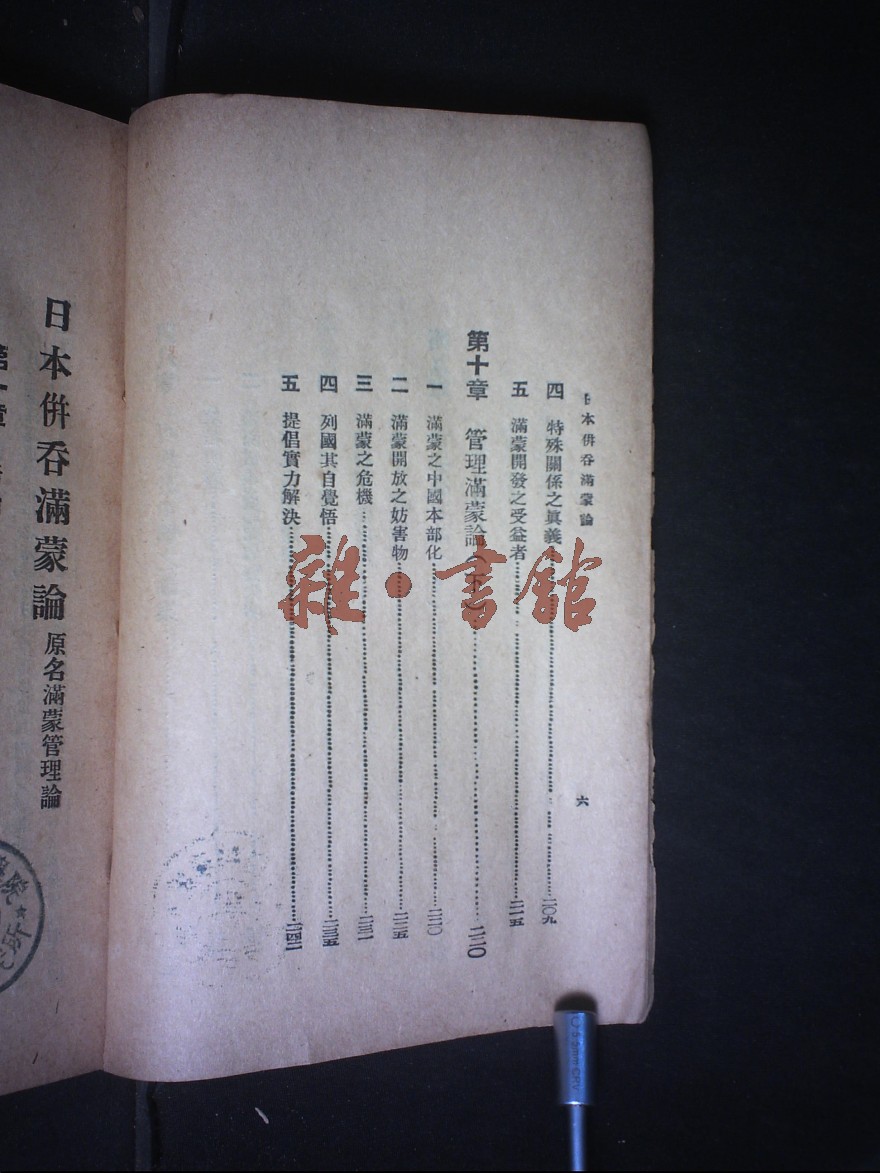 日本併吞滿蒙論
六
四 特殊關係之眞義 二〇九
五 滿蒙開發之受益者 二一五
第十章 管理滿蒙論(下) 二二〇
一 滿蒙之中國本部化 二二〇
二 滿蒙開放之妨害物 二二五
三 滿蒙之危機 二三一
四 列國其自覺悟 二三五
五 提倡實力解決 二四二
日本併吞滿蒙論 原名滿蒙管理論
第一章
雜·書館